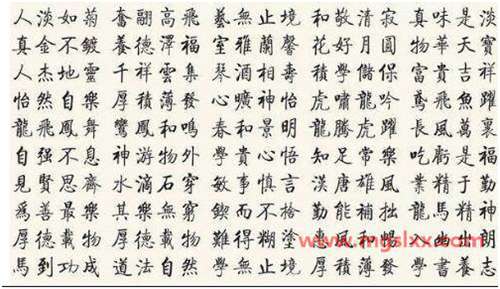 人淡如菊 奮翮高飛 藝無止境 和敬清寂 真味是淡
真金不鍍 養德澤福 室雅蘭馨 花好月圓 物華天寶
人杰地靈 千祥雲集 琴酒相壽 積學儲保 富貴吉祥
怡然自樂 厚積薄發 心曠神怡 虎嘯龍吟 鳶飛魚躍
龍飛鳳舞 鸞鳳和鳴 春和景明 龍騰虎躍 長風萬裏
自强不息 神游物外 學貴心悟 知足常樂 吃虧是福
見賢思齊 水滴石穿 敏事慎言 漢唐雄風 業精于勤
爲善最樂 其樂無窮 鍥而不捨 勤能補拙 龍馬精神
厚德載物 難得糊塗 惠風和暢
馬到功成 道法自然 學無止境 厚積薄發 學書養志
www.mgslxx.com